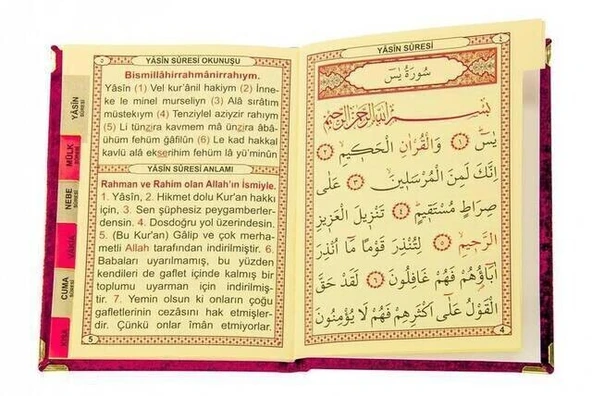 YÂSÎN SÛRESİ
٤
سُورَةُ يٰسٓ
بِسْمِ اللّٰهِ الرَّحْمٰنِ الرَّحِيمِ
يٰسٓ ﴿١﴾ وَالْقُرْاٰنِ الْحَكِيمِ ﴿٢﴾
اِنَّكَ لَمِنَ الْمُرْسَلِينَ ﴿٣﴾ عَلٰى
صِرَاطٍ مُسْتَقِيمٍ ﴿٤﴾ تَنْزِيلَ الْعَزِيزِ
الرَّحِيمِ ﴿٥﴾ لِتُنْذِرَ قَوْمًا مَٓا اُنْذِرَ
اٰبَٓاؤُ۬هُمْ فَهُمْ غَافِلُونَ ﴿٦﴾ لَقَدْ حَقَّ
الْقَوْلُ عَلٰٓى اَكْثَرِهِمْ فَهُمْ لَا يُؤْمِنُونَ
4
٥
YÂSÎN SÛRESİ OKUNUŞU
Bismillâhirrahmânirrahıym.
Yâsîn (1) Vel kur'ânil hakiym (2) İnne-
ke le minel murseliyn (3) Alâ sırâtim
müstekıym (4) Tenziylel aziyzir rahıym
(5) Li tünzira kavmem mâ ünzira âbâ-
ühüm fehüm ğâfilûn (6) Le kad hakkal
kavlü alâ ekserihim fehüm lâ yü'minûn
YÂSÎN SÛRESİ ANLAMI
Rahman ve Rahim olan Allah'ın İsmiyle.
1. Yâsîn, 2. Hikmet dolu Kur'an hakkı
için, 3. Sen şüphesiz peygamberler-
densin. 4. Dosdoğru yol üzerindesin.
5. (Bu Kur'an) Gâlip ve çok merha-
metli Allah tarafından indirilmiştir. 6.
Babaları uyarılmamış, bu yüzden
kendileri de gaflet içinde kalmış bir
toplumu uyarman için indirilmiş-
tir. 7. Yemin olsun ki onların çoğu
gafletlerinin cezasını hak etmişler-
dir. Çünkü onlar îmân etmiyorlar.
5
YÂSÎN
SÛRESİ
MÜLK
SÛRESİ
NEBE
SÛRESİ
CUMA
SÛRESİ